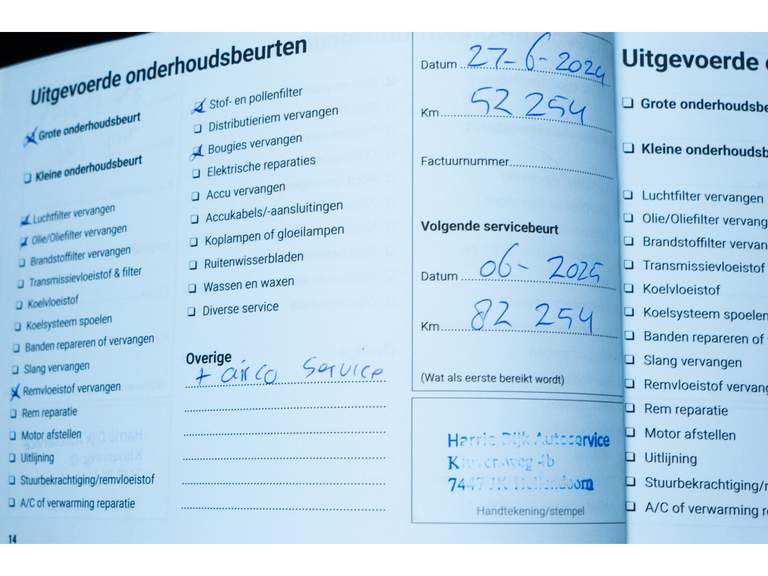 Uitgevoerde onderhoudsbeurten
Grote onderhoudsbeurt
Kleine onderhoudsbeurt
Luchtfilter vervangen
Olie/Oliefilter vervangen
Brandstoffilter vervangen
Transmissievloeistof & filter
Koelvloeistof
Koelsysteem spoelen
Banden repareren of vervangen
Slang vervangen
Remvloeistof vervangen
Rem reparatie
Motor afstellen
Uitlijning
Stuurbekrachtiging/remvloeistof
A/C of verwarming reparatie
14
Stof- en pollenfilter
Distributieriem vervangen
Bougies vervangen
Elektrische reparaties
Accu vervangen
Accukabels/-aansluitingen
Koplampen of gloeilampen
Ruitenwisserbladen
Wassen en waxen
Diverse service
Overige
+ airco service
Datum 27-6-2024
Km 52 254
Factuurnummer
Volgende servicebeurt
Datum 06-2025
Km 82 254
(Wat als eerste bereikt wordt)
Harrie Dijk Autoservice
4b
7447 JK Hellendoorn
Handtekening/stempel
Uitgevoerde
Grote onderhoudsbe
Kleine onderhoudsb
Luchtfilter vervangen
Olie/Oliefilter vervang
Brandstoffilter vervan
Transmissievloeistof
Koelvloeistof
Koelsysteem spoelen
Banden repareren of
Slang vervangen
Remvloeistof vervang
Rem reparatie
Motor afstellen
Uitlijning
Stuurbekrachtiging/r
A/C of verwarming re